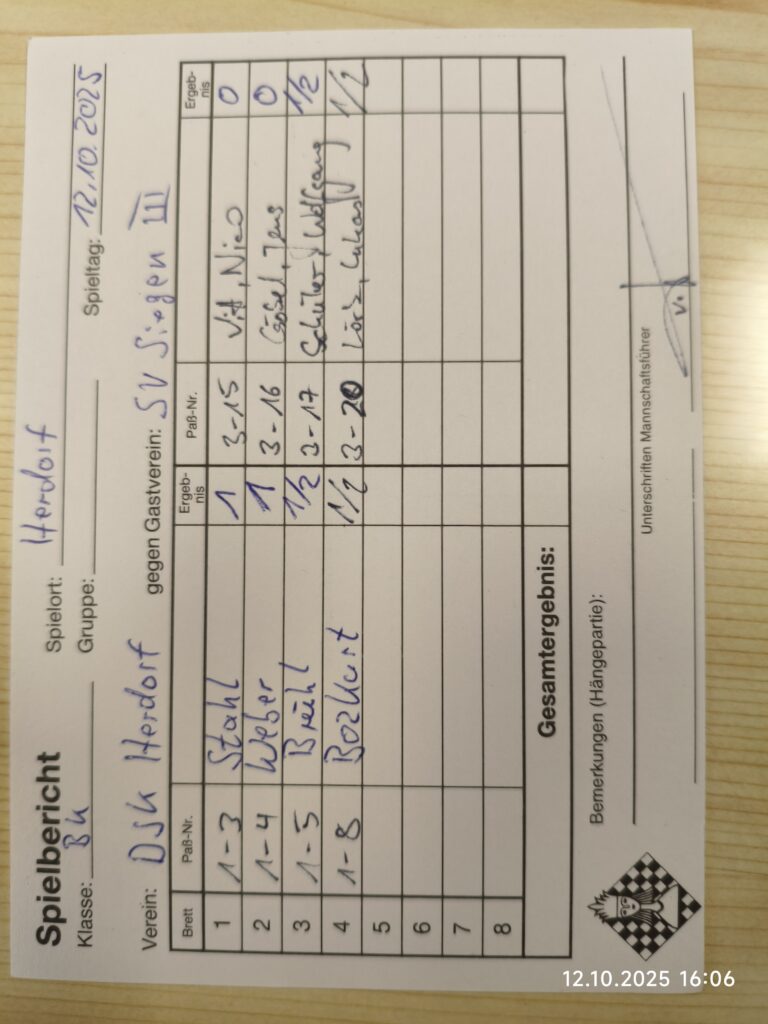 Spielbericht Spielort: Herdorf
Klasse: BK Gruppe: Spieltag: 12.10.2025
Verein: DSK Herdorf gegen Gastverein: SV Siegen III
Brett Paß-Nr. Ergeb-nis Paß-Nr. Ergeb-nis
1 1-3 Stahl 1 3-15 Vit, Nico 0
2 1-4 Weber 1 3-16 Jens 0
3 1-5 Breihl 1/2 3-17 Schüler, Wolfgang 1/2
4 1-8 Bozkurt 1/2 3-20 Lukas 1/2
5
6
7
8
Gesamtergebnis:
Bemerkungen (Hängepartie):
Unterschriften Mannschaftsführer
12.10.2025 16:06